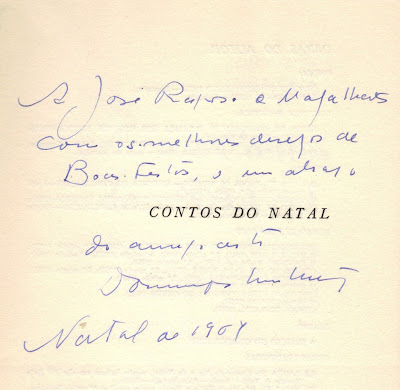 A José Raposo e Magalhães
com os melhores desejos de
Boas-Festas, e um abraço
CONTOS DO NATAL
do amigo
Domingos Monteiro
Natal de 1964